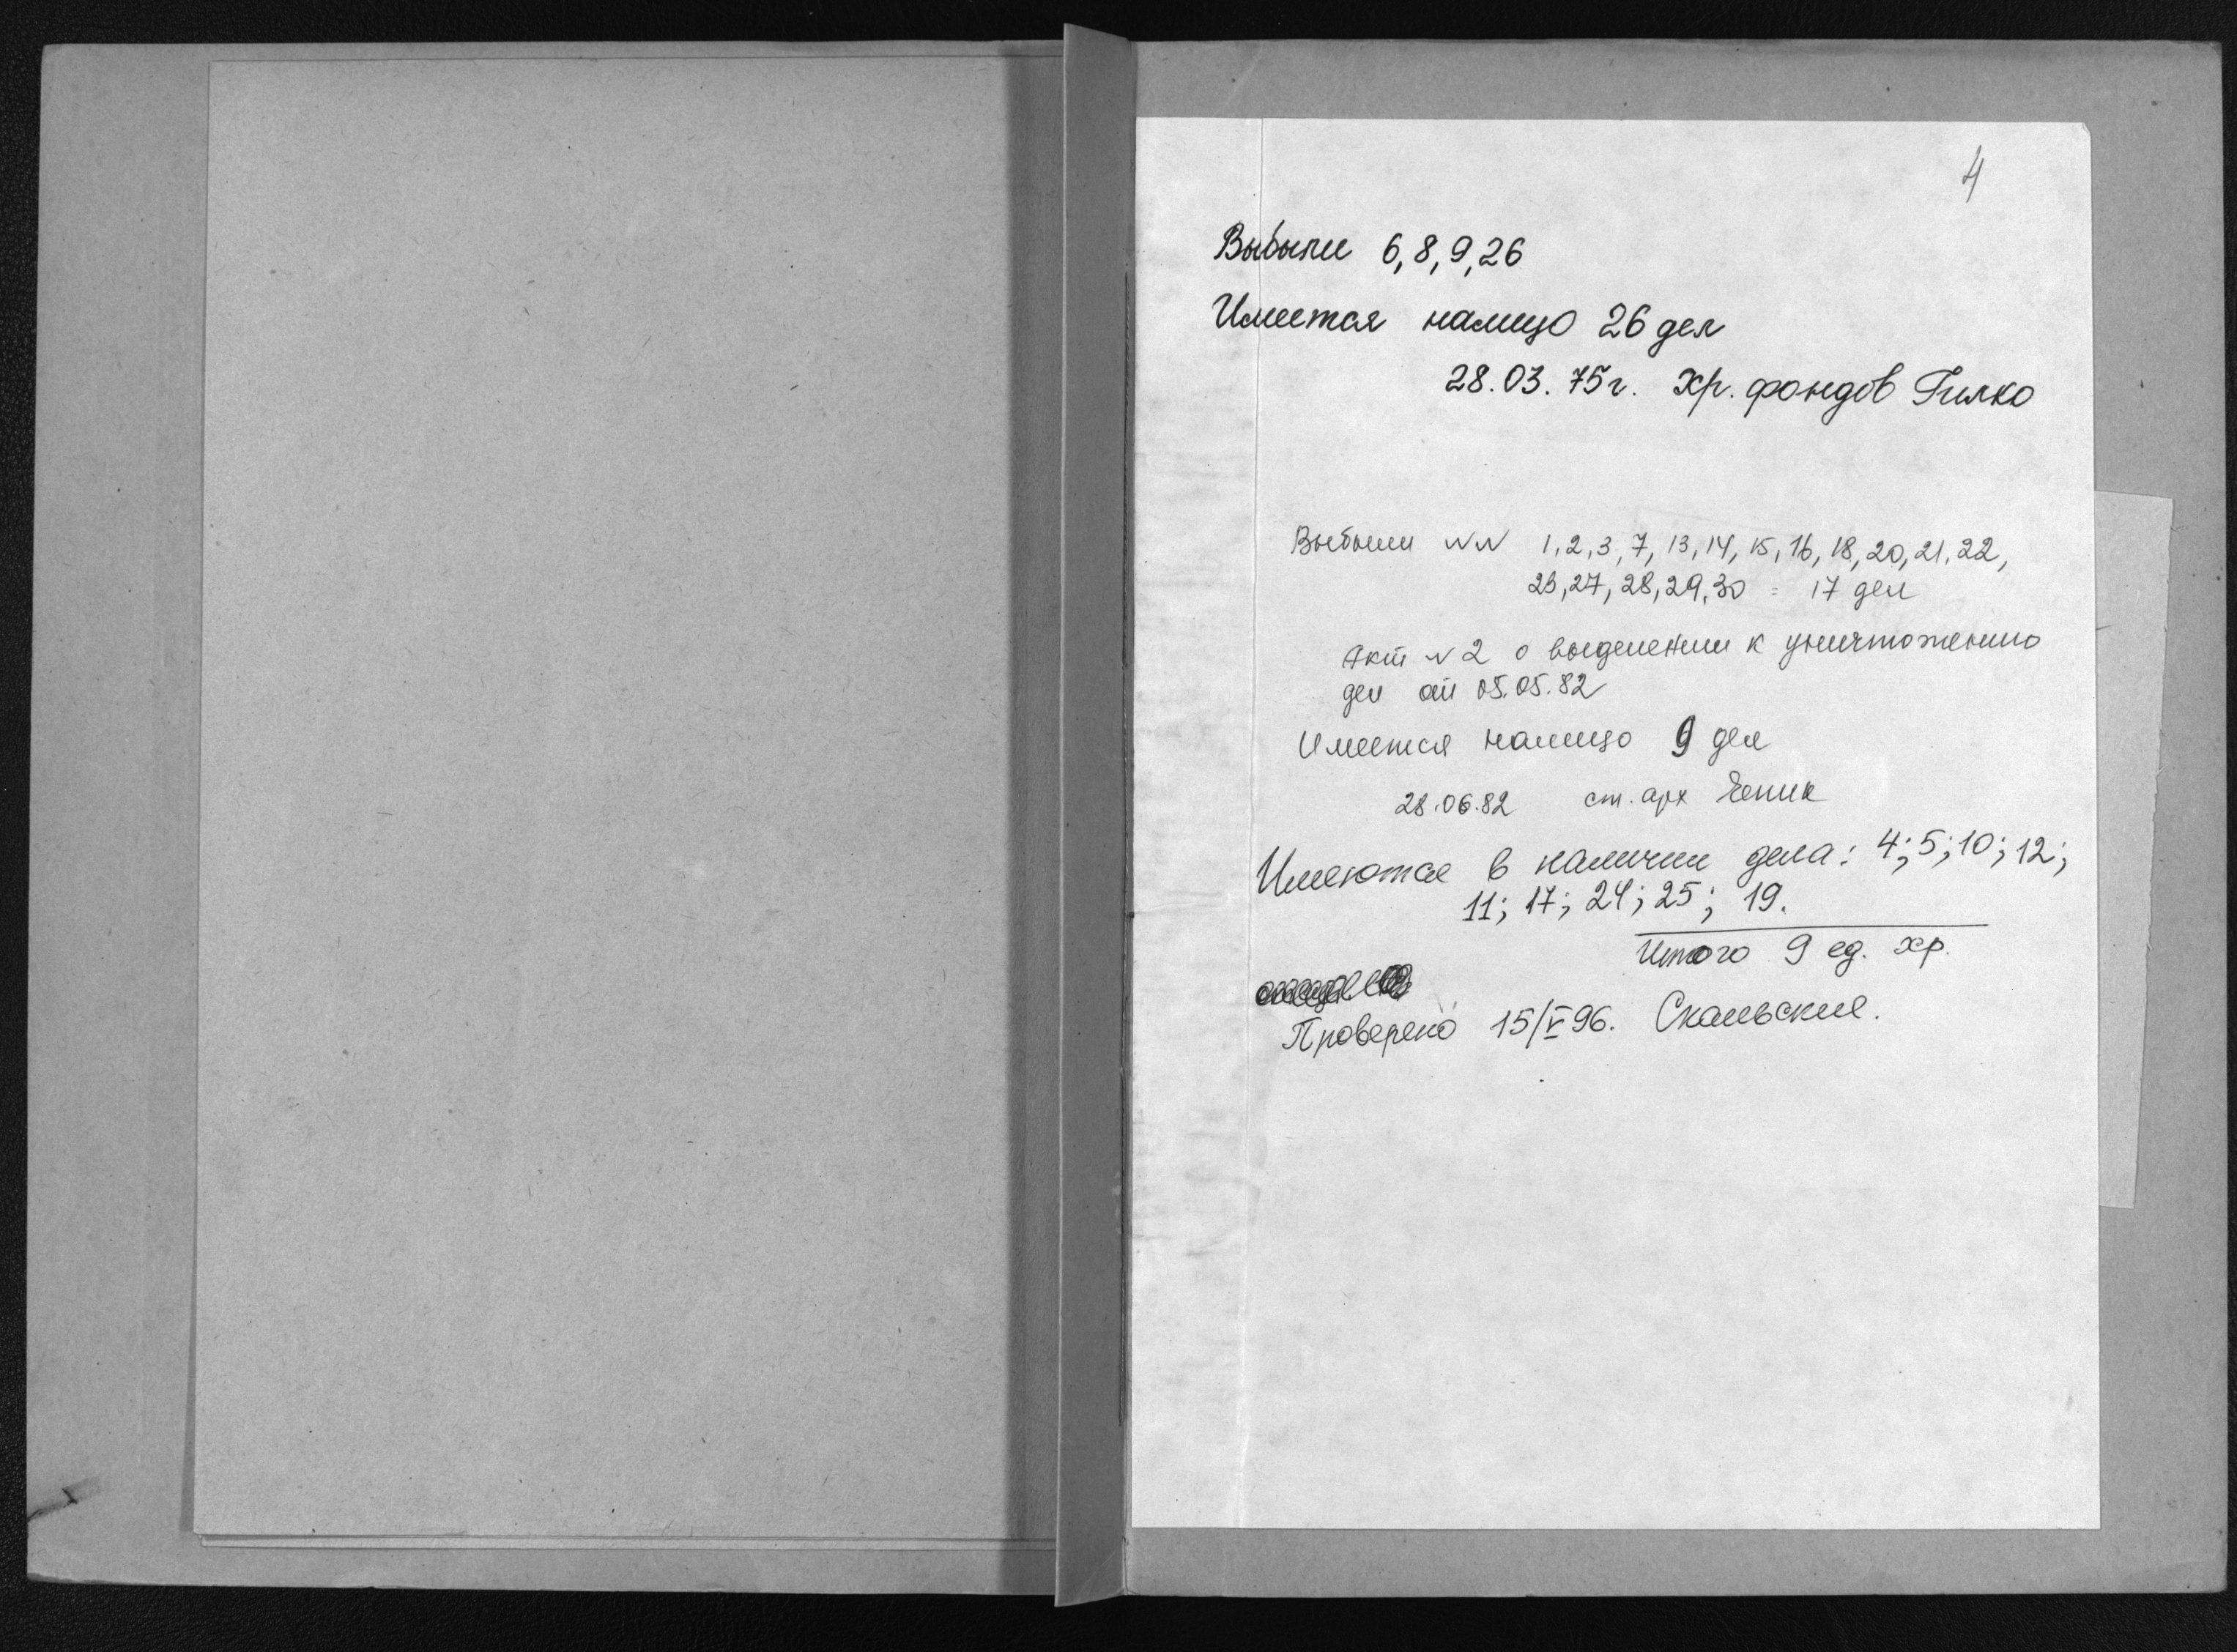 4
Выбыли 6, 8, 9, 26
Имеется налицо 26 дел
28.03.75г. Хр. фондов Гилко
Выбыли NN 1, 2, 3, 7, 13, 14, 15, 16, 18, 20, 21, 22,
23, 27, 28, 29, 30 = 17 дел
Акт N 2 о выделении к уничтожению
дел от 05.05.82
Имеется налицо 9 дел
28.06.82 ст. арх
Имеются в наличии дела: 4; 5; 10; 12;
11; 17; 24; 25; 19.
Итого 9 ед. хр.
Проверено 15/V 96.